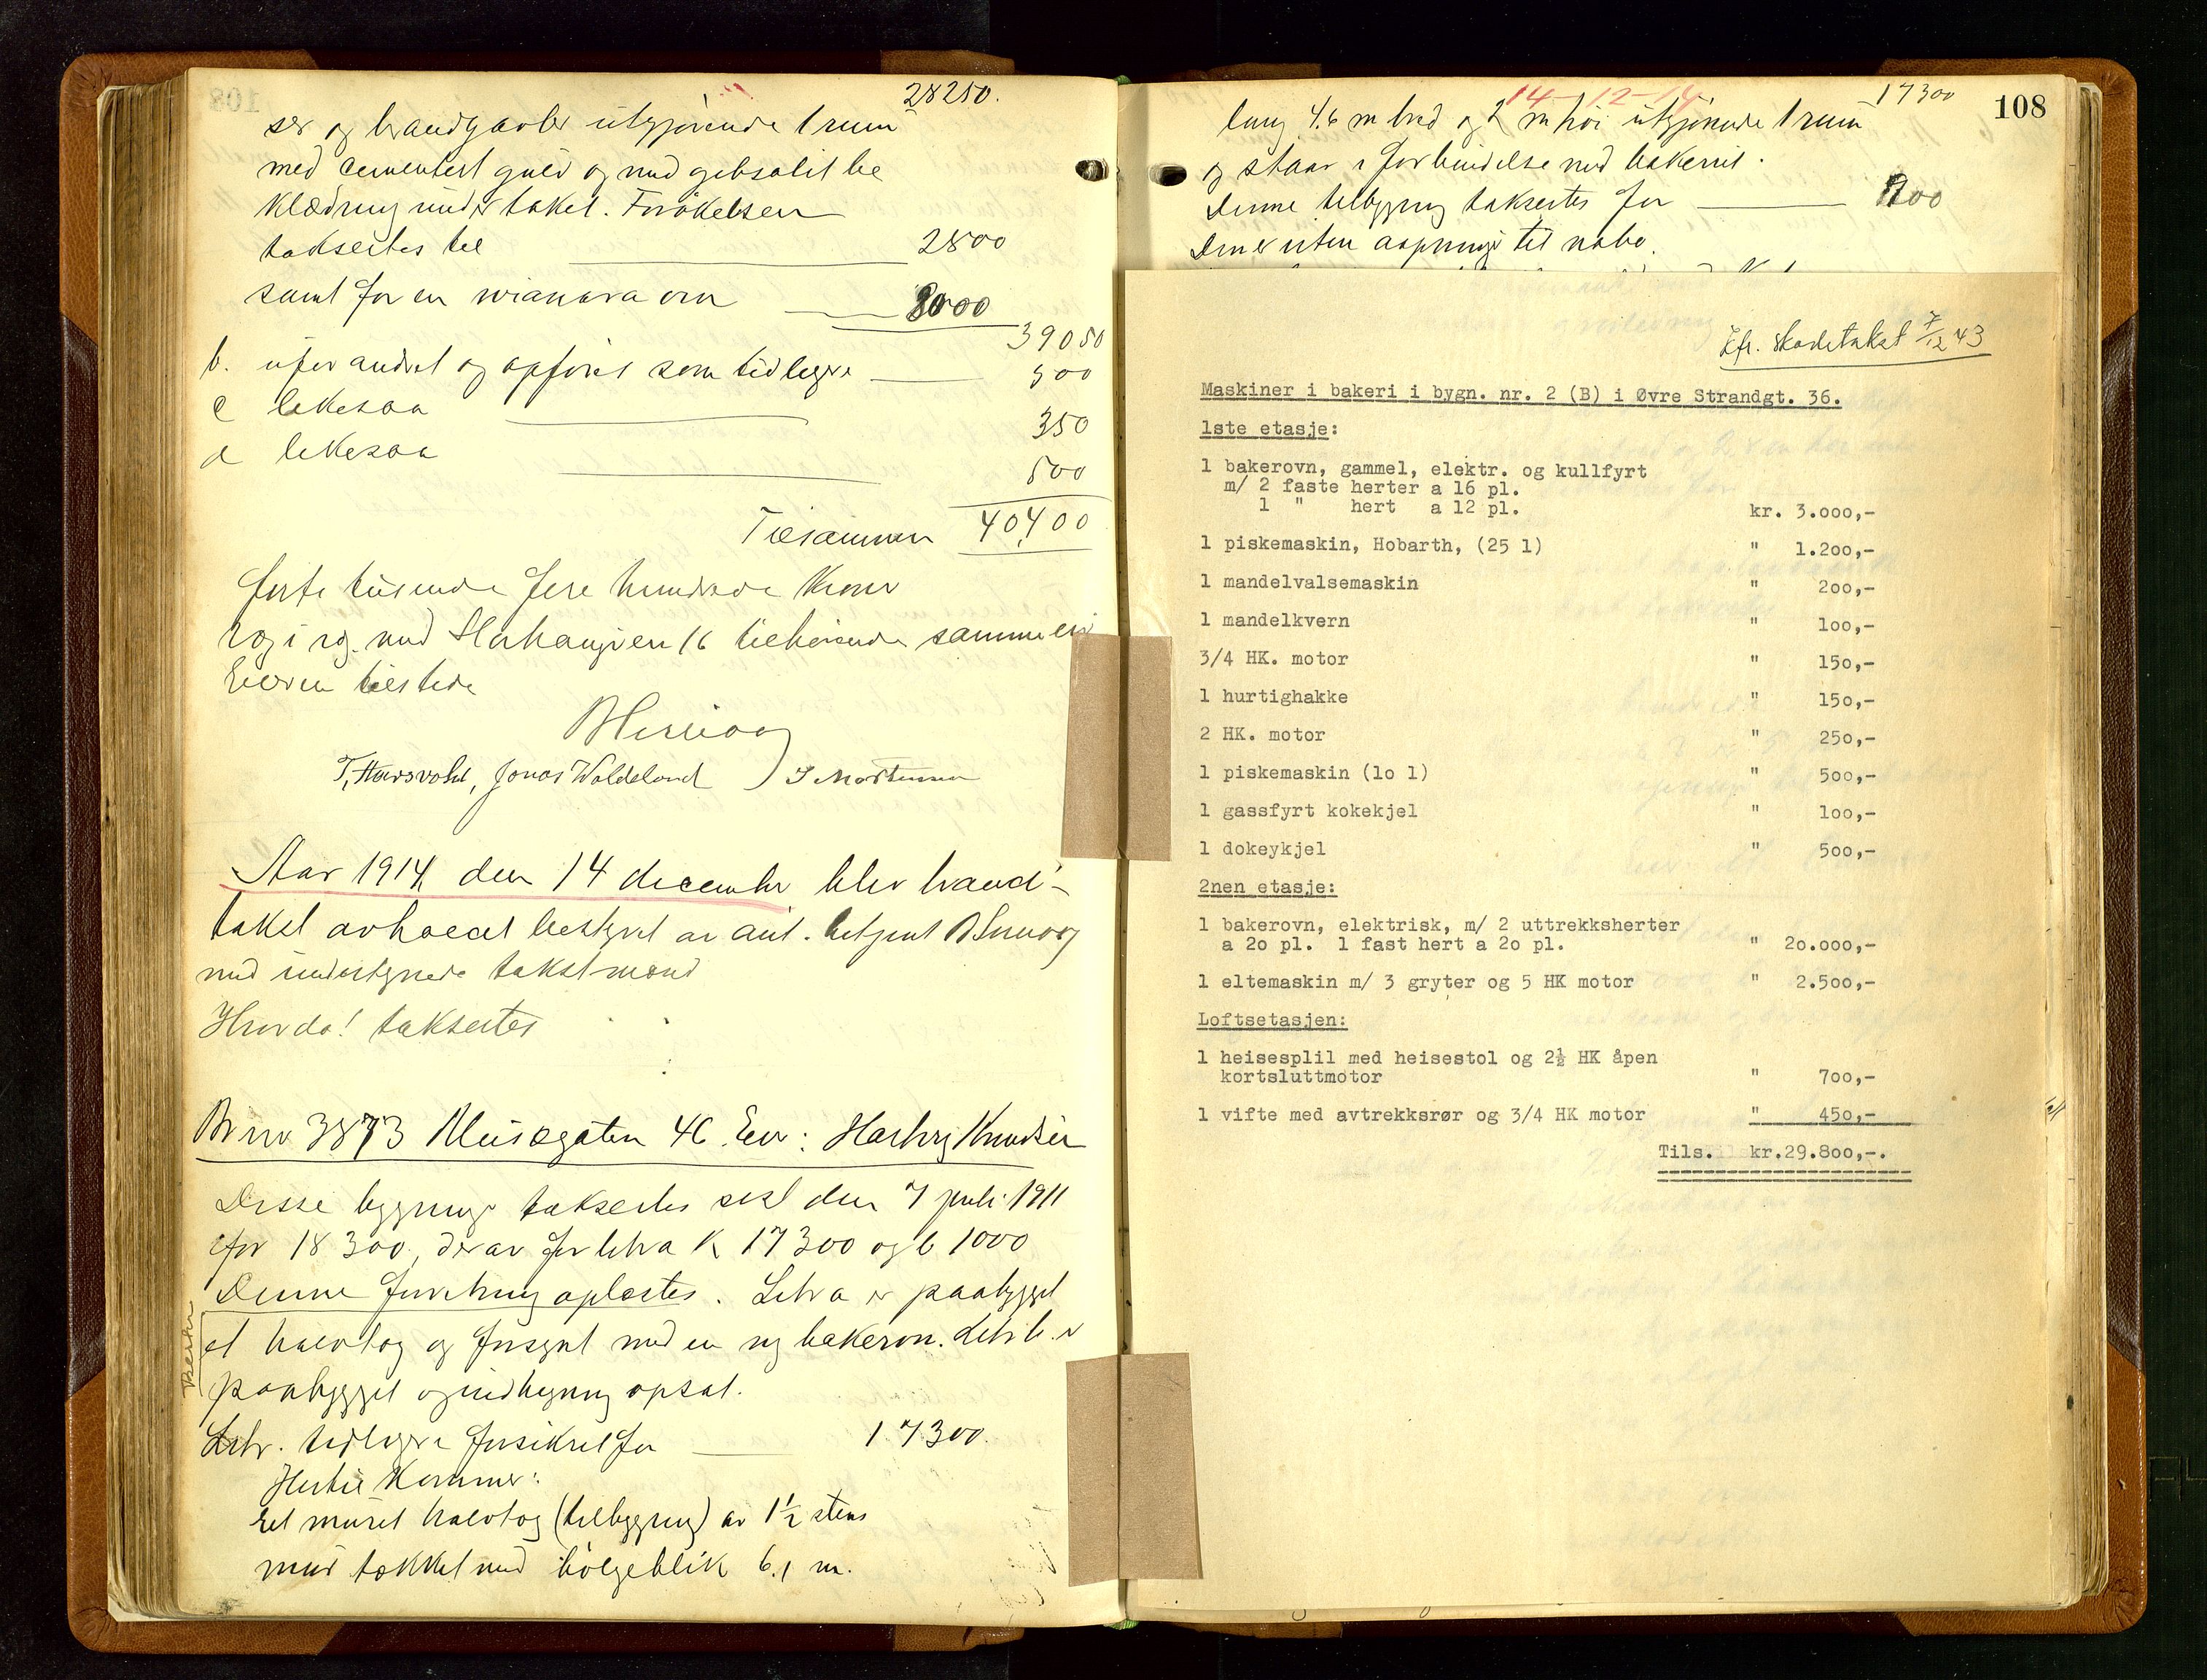 28250.
ser og brandgavler utgjørende 1 rum
med cementert gulv og med gibsolit be
klædning under taket. Forøkelsen
taksertes til 2800
samt for en wianova ovn 8000
39050
b. uforandret og opføres som tidligere 500
c likesaa 350
d likesaa 500
Tilsammen 40,400
førti tusende fire hundrede kroner
med 16 tilhørende samme eier
Eieren tilstede
T. Hausvold, Jonas Waldeland J Mortensen
Aar 1914 den 14 december blev brand-
takst avholdt bestyret av
med undertegnede takstmænd
Hvorda! taksertes
Br no 3873 Musegaten 46. Eier: Hartvig Knudsen
Disse bygninger taksertes sist den 7 juli 1911
for 18300, derav for litra 17300 og b 1000
Denne forretning oplæstes. Litra er paabygget
et halvtag og forsynt med en ny bakerovn. Litr b. er
paabygget og indhegning opsat.
Litr. tidligere forsikret for 17300.
Hertil kommer:
Et muret halvtag (tilbygning) av 1½ stens
mur tækket med bølgeblik 6.1 m.
14-12-14
17300
108
lang 4.6 m bred og 2 m høi utgjørende 1 rum
og staar i forbindelse med bakeriet.
Denne tilbygning taksertes for
Den er uten aapninger til nabo.
Kfr. Skadetakst 7/12 43
Maskiner i bakeri i bygn. nr. 2 (B) i Øvre Strandgt. 36.
1ste etasje:
1 bakerovn, gammel, elektr. og kullfyrt
m/ 2 faste herter a 16 pl.
1 " hert a 12 pl. kr. 3.000,-
1 piskemaskin, Hobarth, (25 l) " 1.200,-
1 mandelvalsemaskin " 200,-
1 mandelkvern " 100,-
3/4 HK. motor " 150,-
1 hurtighakke " 150,-
2 HK. motor " 250,-
1 piskemaskin (10 l) " 500,-
1 gassfyrt kokekjel " 100,-
1 dokeykjel " 500,-
2nen etasje:
1 bakerovn, elektrisk, m/ 2 uttrekksherter
a 20 pl. 1 fast hert a 20 pl. " 20.000,-
1 eltemaskin m/ 3 gryter og 5 HK motor " 2.500,-
Loftsetasjen:
1 heisesplil med heisestol og 2½ HK åpen
kortsluttmotor " 700,-
1 vifte med avtrekksrør og 3/4 HK motor " 450,-
Tils. kr.29.800,-.